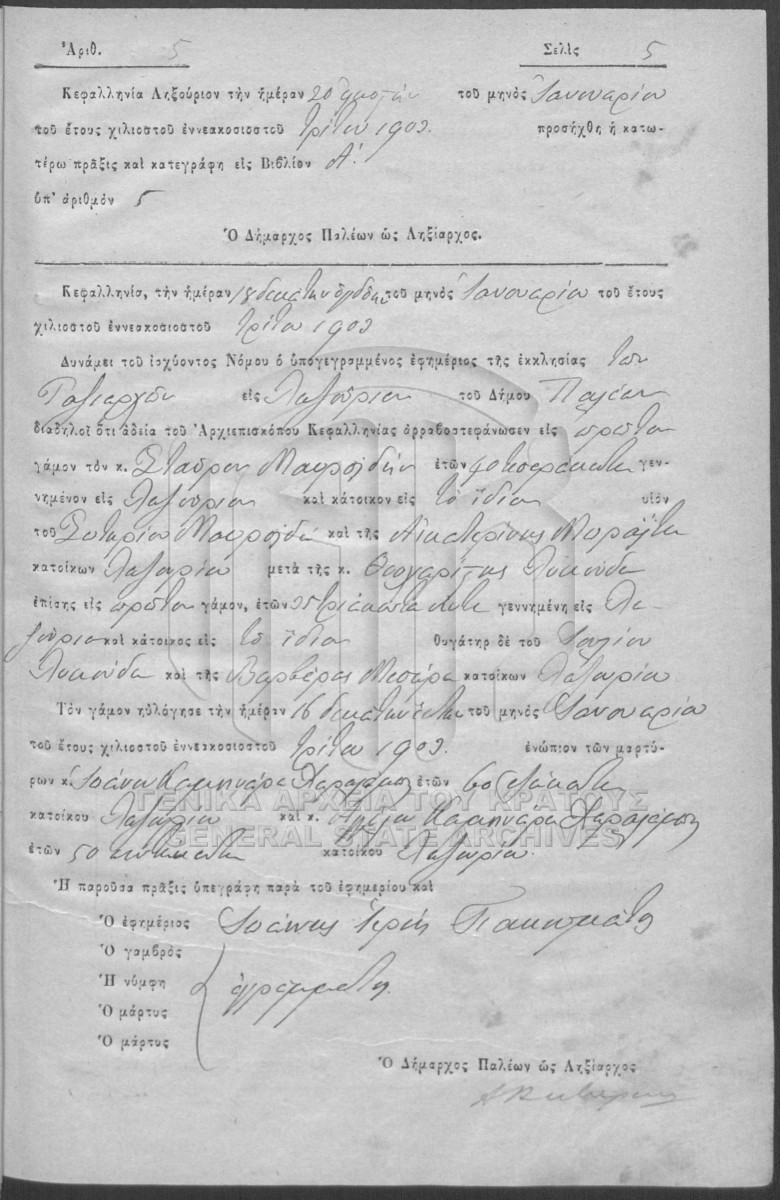 Ἀριθ. 5 Σελὶς 5
Κεφαλληνία Ληξούριον τὴν ἡμέραν 20 τοῦ μηνὸς Ἰανουαρίου
τοῦ ἔτους χιλιοστοῦ ἐννεακοσιοστοῦ τρίτου 1903. προσήχθη ἡ κατω-
τέρω πρᾶξις καὶ κατεγράφη εἰς Βιβλίον Α΄.
ὑπ' ἀριθμὸν 5
Ὁ Δήμαρχος Παλέων ὡς Ληξίαρχος.
Κεφαλληνία, τὴν ἡμέραν 18 δεκάτην ὀγδόην τοῦ μηνὸς Ἰανουαρίου τοῦ ἔτους
χιλιοστοῦ ἐννεακοσιοστοῦ τρίτου 1903
Δυνάμει τοῦ ἰσχύοντος Νόμου ὁ ὑπογεγραμμένος ἐφημέριος τῆς ἐκκλησίας των
Ταξιαρχών εἰς Ληξούριον τοῦ Δήμου Παλέων
διαδηλοῖ ὅτι ἀδείᾳ τοῦ Ἀρχιεπισκόπου Κεφαλληνίας ἀρραβοστεφάνωσεν εἰς πρώτον
γάμον τὸν κ. Σταύρον ἐτῶν 40 τεσσράκοντα γεν-
νημένον εἰς Ληξούριον καὶ κάτοικον εἰς τὸ ἴδιον υἱὸν
τοῦ Σωτηρίου καὶ τῆς Αἰκατερίνης
κατοίκων Ληξουρίου μετὰ τῆς κ.
ἐπίσης εἰς πρώτον γάμον, ἐτῶν 35 τριάκοντα πέντε γεννημένη εἰς Λη-
ξούριον καὶ κάτοικος εἰς τὸ ἴδιον θυγάτηρ δὲ τοῦ
καὶ τῆς Βαρβάρας κατοίκων Ληξουρίου
Τὸν γάμον ηὐλόγησε τὴν ἡμέραν 16 δεκάτην ἕκτην τοῦ μηνὸς Ἰανουαρίου
τοῦ ἔτους χιλιοστοῦ ἐννεακοσιοστοῦ τρίτου 1903. ἐνώπιον τῶν μαρτύ-
ρων κ. Ἰωάννου Καμηνάρα ἐτῶν 60 ἑξήκοντα
ΓΕΝΙΚΑ ΑΡΧΕΙΑ ΤΟΥ ΚΡΑΤΟΥΣ
κατοίκου Ληξουρίου καὶ κ. Καμηνάρα
GENERAL STATE ARCHIVES
ἐτῶν 50 πεντήκοντα κατοίκου Ληξουρίου.
Ἡ παροῦσα πρᾶξις ὑπεγράφη παρὰ τοῦ ἐφημερίου καὶ
Ὁ ἐφημέριος Ἰωάννης Ἱερεύς
Ὁ γαμβρὸς
Ἡ νύμφη ἀγράμματοι
Ὁ μάρτυς
Ὁ μάρτυς
Ὁ Δήμαρχος Παλέων ὡς Ληξίαρχος